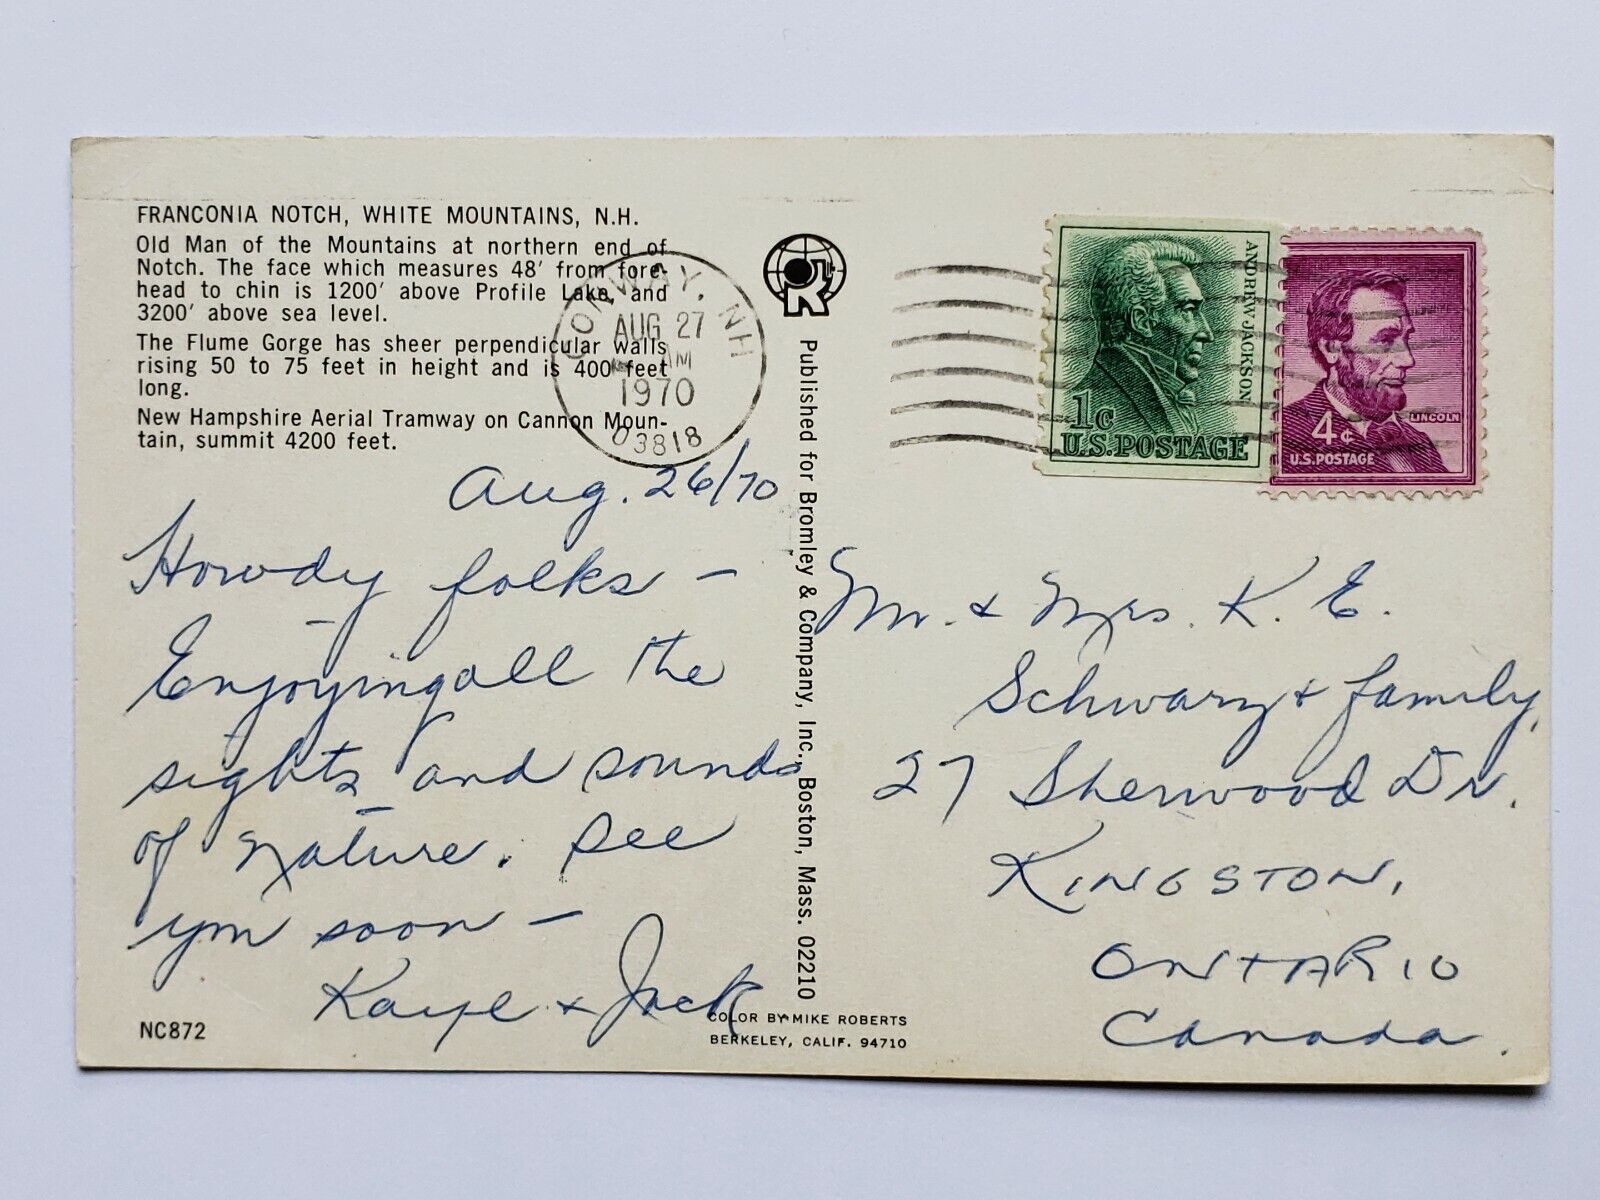 FRANCONIA NOTCH, WHITE MOUNTAINS, N.H.
Old Man of the Mountains at northern end of
Notch. The face which measures 48' from fore-
head to chin is 1200' above Profile Lake, and
3200' above sea level.
The Flume Gorge has sheer perpendicular walls
rising 50 to 75 feet in height and is 400 feet
long.
New Hampshire Aerial Tramway on Cannon Moun-
tain, summit 4200 feet.
Aug. 26/70
Howdy folks -
Enjoying all the
sights and sounds
of nature. See
you soon -
Kaye + Jack
NC872
CONWAY, NH
AUG 27
AM
1970
03818
Published for Bromley & Company, Inc., Boston, Mass. 02210
COLOR BY MIKE ROBERTS
BERKELEY, CALIF. 94710
ANDREW JACKSON
1c
U.S. POSTAGE
LINCOLN
4c
U.S. POSTAGE
Mr. & Mrs. K. E.
Schwarz & family,
27 Sherwood Dr.
KINGSTON,
ONTARIO
Canada.